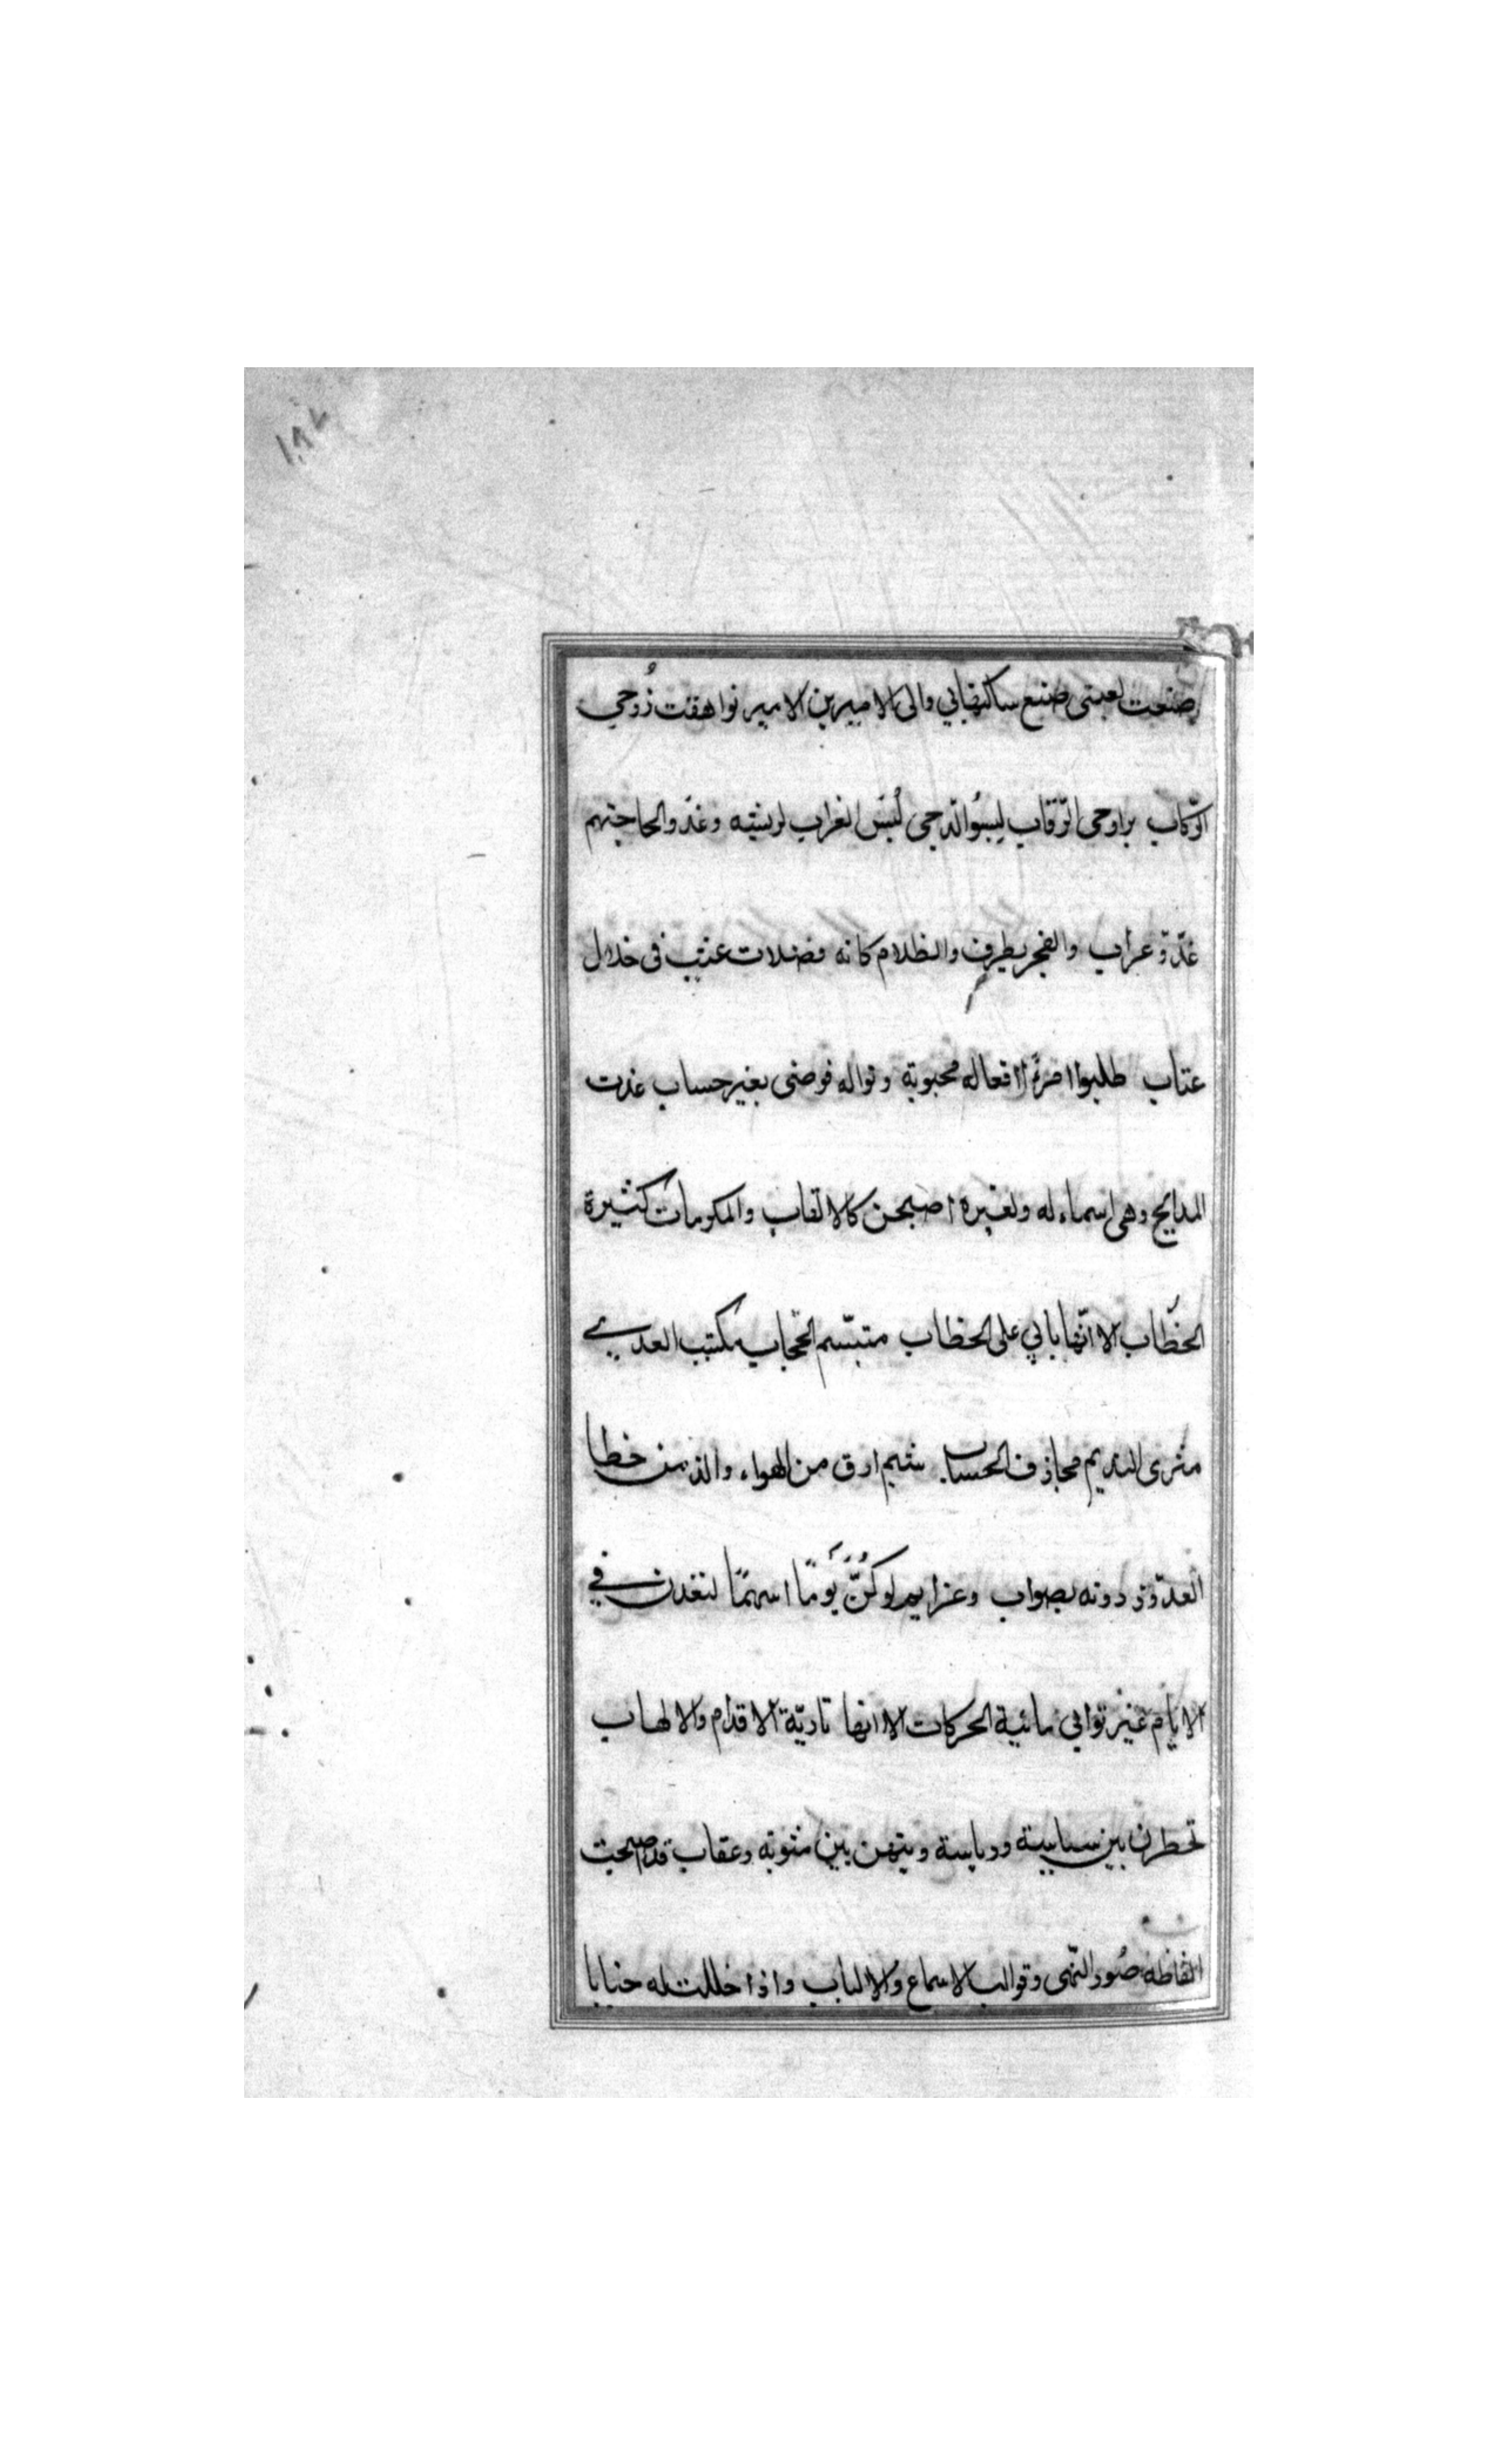 ١٨٧
صنعت لعبتى صنع ساكنها بي والى الامير بن الامير نواهقت زوحي
الرّكاب براوحى الرّقاب لبسُوا الدّجى لُبسَ الغراب لريشه وغدوا لحاجتهم
غدوّ غراب والفجر يطرف والظلام كانه فضلات عتب فى خلال
عتاب طلبوا امرءًا افعاله محبوبة ونواله فوضى بغير حساب غدت
المدايح وهى اسماء له ولغيره اصبحن كالالقاب والمكرمات كثيرة
الخُطّاب الا انّها تابي على الخطاب متبسّم الحجاب مكتب العدى
مثرى النديم مجازف الحساب شيم ارق من الهواء والذ من خطا
العدوّ ودونه بصواب وعزايم لو كُنَّ يَومًا اسهمًا لنفذن في
الايام غير نوابي مائية الحركات الا انها ناريّة الاقدام والالهاب
تخطرن بين سياسة ورياسة ويتهن بين مثوبة وعقاب قد اصبحت
الفاظه صُور النّهى وقوالب الاسماع والالباب واذا حللت له جنابا